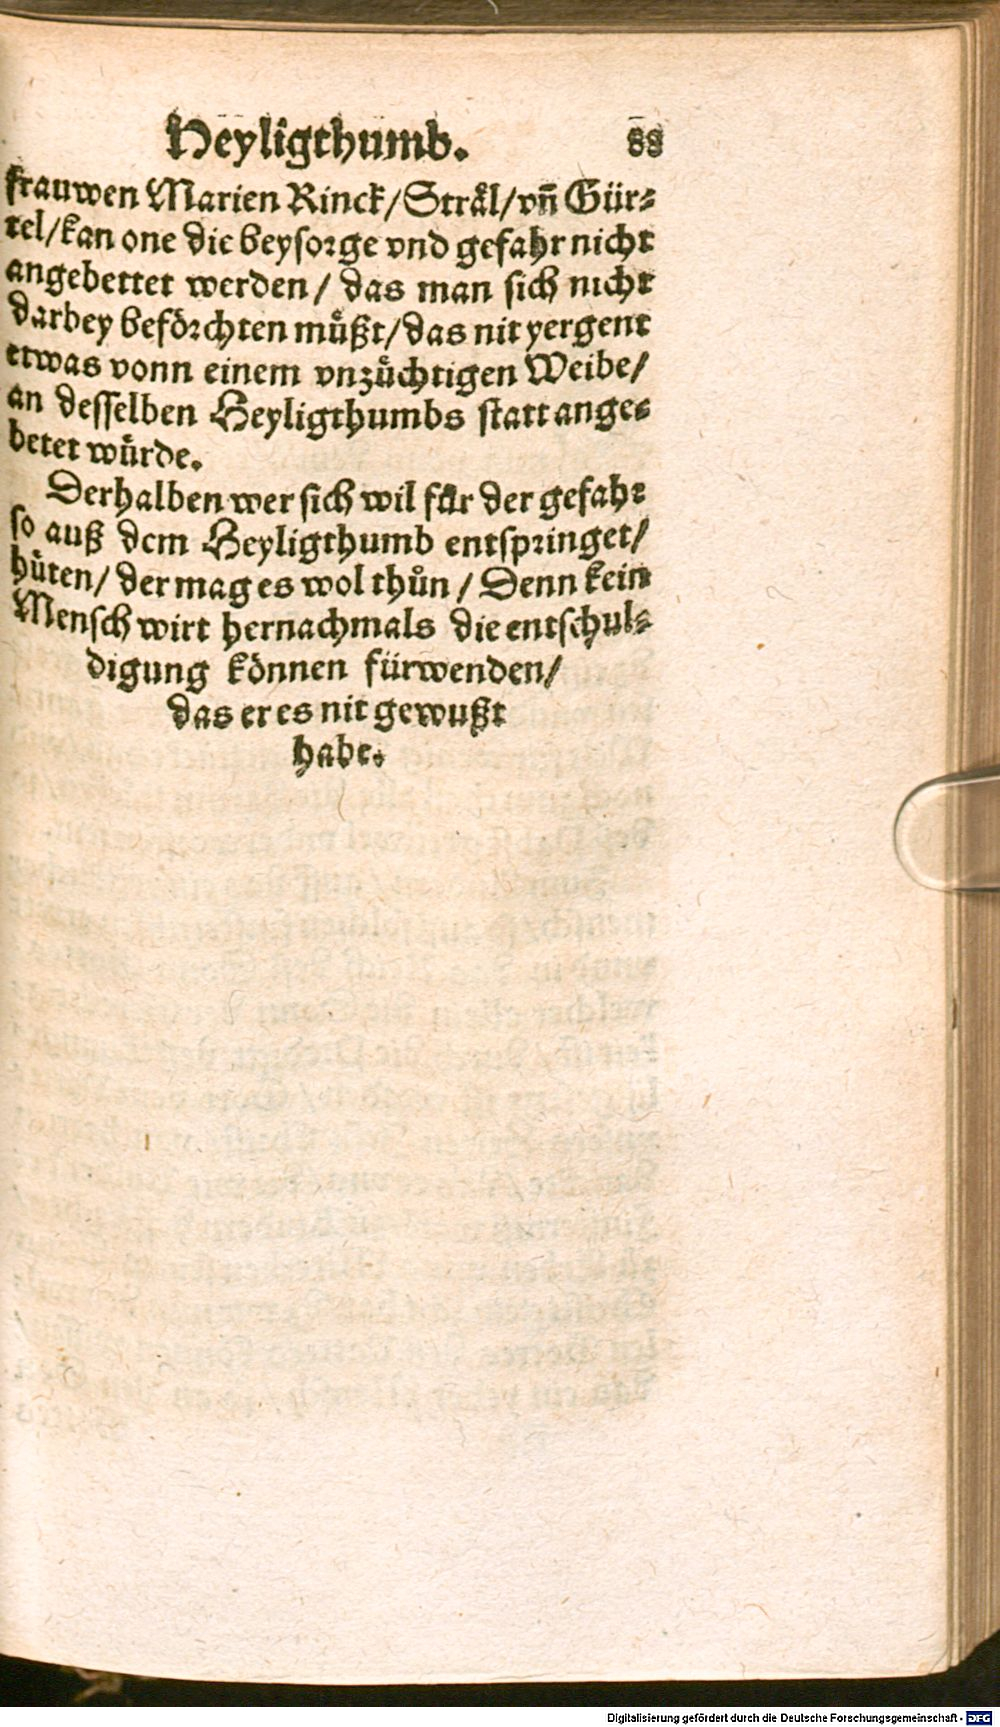 Heyligthumb. 88
frauwen Marien Rinck/Stråll/vnd̄ Gür⸗
tel/kan one die beysorge vnd gefahr nicht
angebettet werden/ das man sich nicht
darbey befőrchten můßt/das nit yergent
etwas vonn einem vnzůchtigen Weibe/
an desselben Heyligthumbs statt ange⸗
betet würde.
Derhalben wer sich wil für der gefahr
so auß dem Heyligthumb entspringet/
hüten/ der mag es wol thůn / Denn kein
Mensch wirt hernachmals die entschul⸗
digung können fürwenden/
das er es nit gewußt
habe.
Digitalisierung gefördert durch die Deutsche Forschungsgemeinschaft - DFG